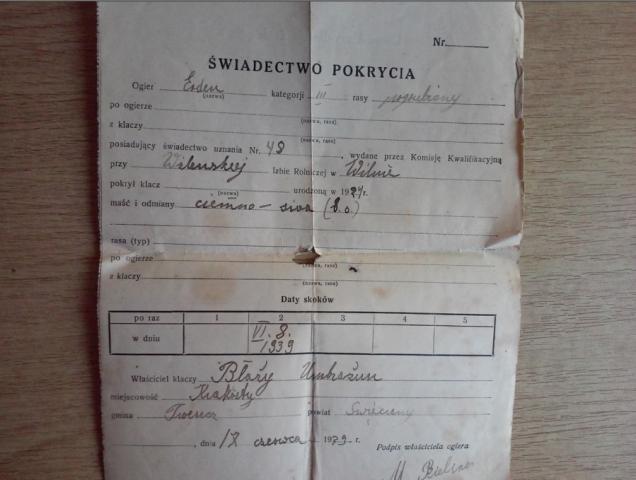 Nr.
ŚWIADECTWO POKRYCIA
Ogier Erden kategorji III rasy pogrubiony
(nazwa)
po ogierze
(nazwa, rasa)
z klaczy
(nazwa, rasa)
posiadający świadectwo uznania Nr. 48 , wydane przez Komisję Kwalifikacyjną
przy Wileńskiej Izbie Rolniczej w Wilnie
pokrył klacz urodzoną w 1924 r.
(nazwa)
maść i odmiany ciemno - siwa (8.o.)
rasa (typ)
po ogierze
(nazwa, rasa)
z klaczy
(nazwa, rasa)
Daty skoków
po raz 1 2 3 4 5
w dniu VI. 8. 1939
Właściciel klaczy Błaży
miejscowość
gmina Twerecz powiat Święciany
, dnia czerwca 1939 r.
Podpis właściciela ogiera